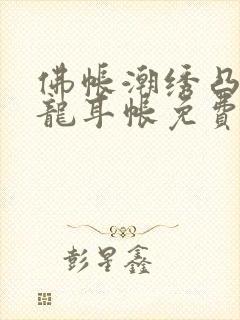 佛帐潮绣凸
龍耳帐免費
彭星鑫